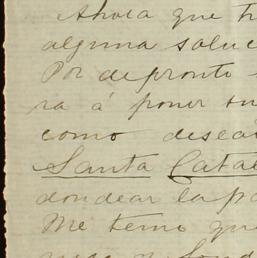 Ahora que tr
alguna soluc
Por de pronto
ra á poner su
como desear
Santa Catal
dondear la po
Me temo que